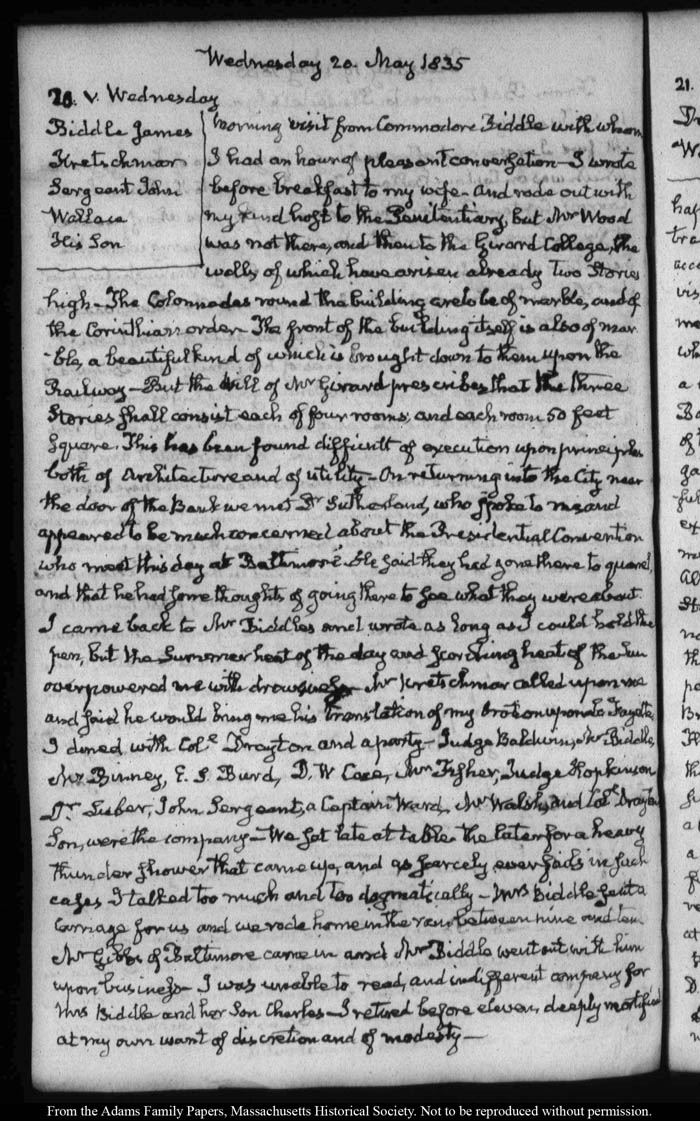 Wednesday 20. May 1835
20. V. Wednesday
Biddle James
Kretschmar
Sergeant John
Wallace
His Son
Morning visit from Commodore Biddle with whom
I had an hour of pleasant conversation — I wrote
before breakfast to my wife — and rode out with
my kind host to the Penitentiary, but Mr Wood
was not there, and then to the Girard College, the
walls of which have arisen already two Stories
high — The Colonnades round the building are to be of marble, and of
the Corinthian order — The front of the building itself is also of mar
ble, a beautiful kind of which is brought down to them upon the
Railway — But the Will of Mr Girard prescribes that the three
Stories shall consist each of four rooms; and each room 50 feet
Square. This has been found difficult of execution upon principles
both of Architecture and of utility — On returning into the City near
the door of the Bank we met Dr Sutherland, who spoke to me and
appeared to be much concerned about the Presidential Convention
who meet this day at Baltimore. He said they had gone there to quarrel,
and that he had some thoughts of going there to see what they were about.
I came back to Mr Biddle's and wrote as long as I could hold the
pen, but the Summer heat of the day and scorching heat of the Sun
overpowered me with drowsiness — Mr Kretschmar called upon me
and said he would bring me his translation of my Oration upon La Fayette
I dined with Cole Drayton and a party — Judge Baldwin, Mr Biddle,
Mr Binney, E. S. Burd, D. W Coxe, Mr Fisher, Judge Hopkinson
Dr Lieber, John Sergeant, a Captain Ward, Mr Walsh, and Cole Drayton
Son, were the company — We sat late at table the later for a heavy
thunder shower that came up, and as scarcely ever fails in such
cases I talked too much and too dogmatically — Mrs Biddle sent a
Carriage for us and we rode home in the rain between nine and ten
Mr Gibbs of Baltimore came in and Mr Biddle went out with him
upon business — I was unable to read, and indifferent company for
Mrs Biddle and her Son Charles — I retired before eleven, deeply mortified
at my own want of discretion and of modesty —
21.
From the Adams Family Papers, Massachusetts Historical Society. Not to be reproduced without permission.